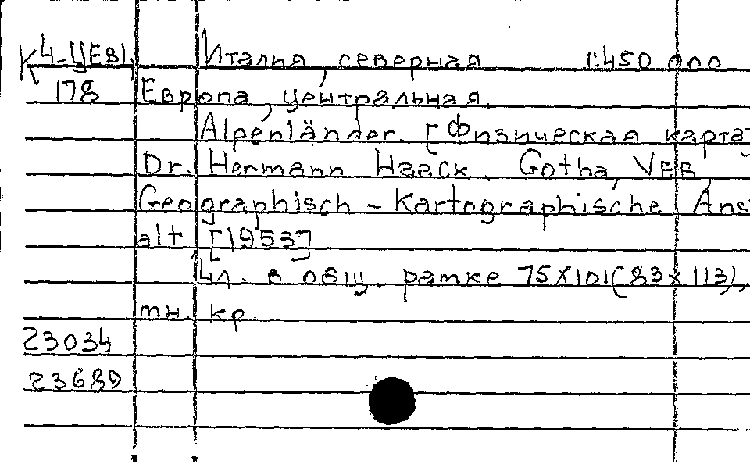 К 4-ЦЕВ Италия, северная 1:450 000
178 Европа, центральная.
Alpenländer. [Физическая карта
Dr. Hermann Haack. Gotha, VEB,
Geographisch - Kartographische Ans
alt [1953]
4л. в общ. рамке 75x101(83x113),
тн. кр.
23034
23689